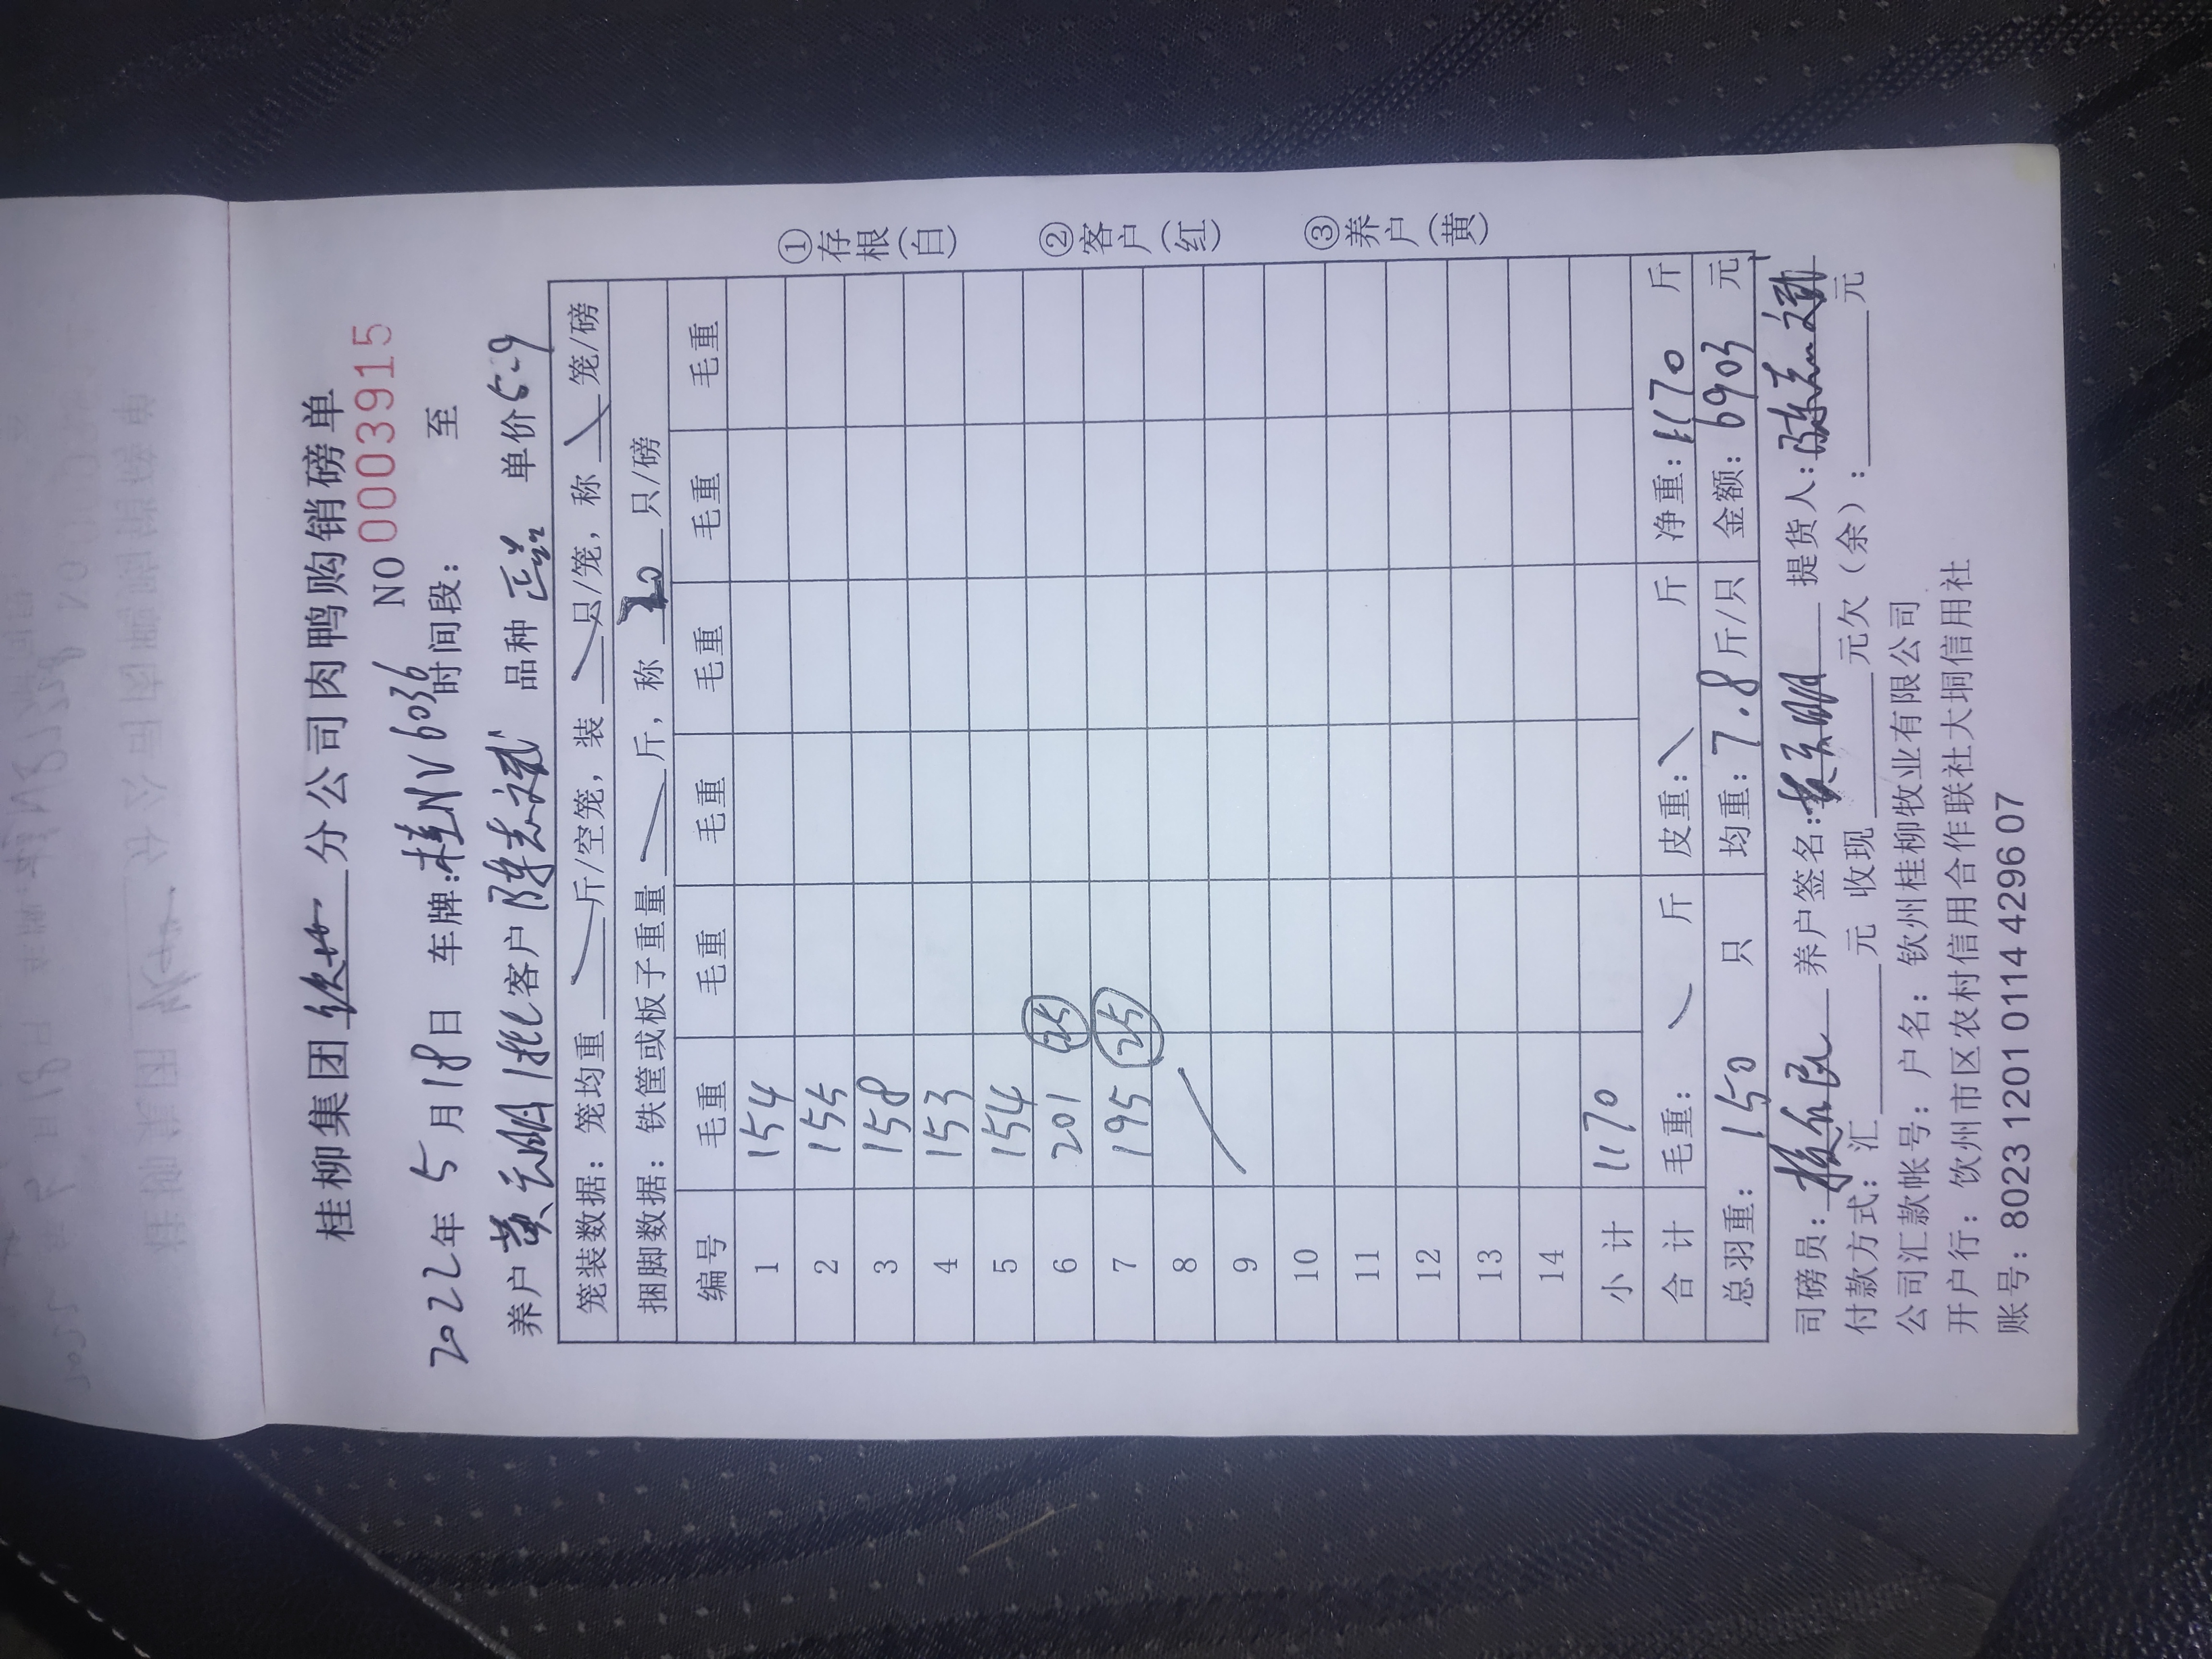 桂柳集团 钦州 分公司肉鸭购销磅单
NO 0003915
2022年 5月18日 车牌:桂NV6036 时间段: 至
养户 黄云朋1批 客户 陈志斌 品种 正益 单价 5.9
笼装数据: 笼均重 斤/空笼, 装 只/笼, 称 笼/磅
捆脚数据: 铁筐或板子重量 斤, 称 20 只/磅
编号 毛重 毛重 毛重 毛重 毛重 毛重
1 154
2 155
3 158
4 153
5 154
6 201 25
7 195 25
8
9
10
11
12
13
14
小 计 1170
合 计 毛重: 斤 皮重: 斤 净重: 1170 斤
总羽重: 150 只 均重: 7.8 斤/只 金额: 6903 元
司磅员: 养户签名: 黄云朋 提货人: 陈志斌
付款方式: 汇 元 收现 元欠(余): 元
公司汇款帐号: 户名: 钦州桂柳牧业有限公司
开户行: 钦州市区农村信用合作联社大垌信用社
账号: 8023 1201 0114 4296 07
①存根(白) ②客户(红) ③养户(黄)